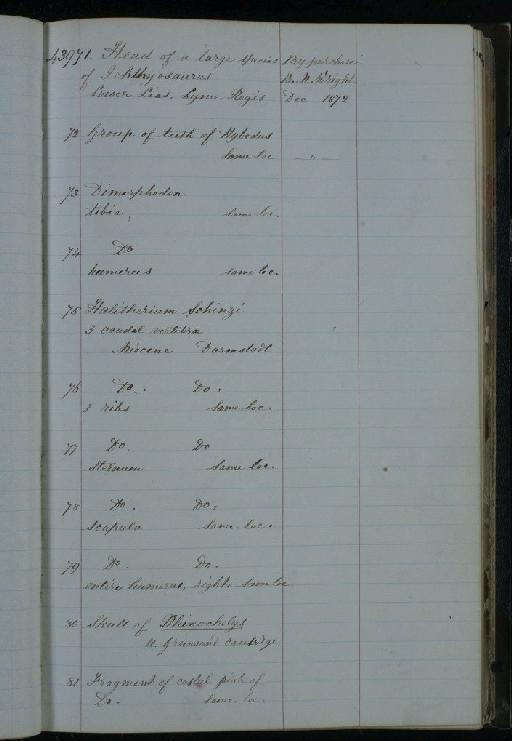 43971. Head of a large species By purchase
of Ichthyosaurus B. M. Wright
Lower Lias. Lyme Regis Dec 1872
72 Group of teeth of Hybodus
same loc — " —
73 Dimorphodon
tibia, same loc.
74 Do
humerus same loc.
75 Halitherium Schinzi
3 caudal vertebra
Miocene Darmstadt
76 Do. Do.
3 ribs same loc.
77 Do. Do
sternum same loc.
78 Do. Do.
scapula same loc.
79 Do. Do.
entire humerus, right same loc
80 Skull of Rhinochelys
U. Greensand Cambridge
81 Fragment of costal plate of
Do. same loc.